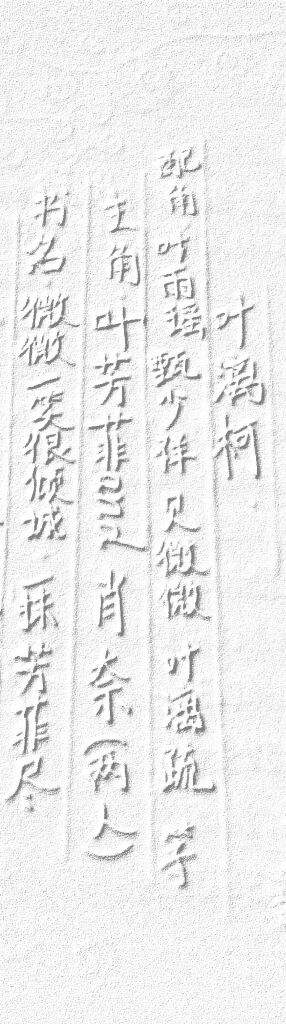 书名:微微一笑很倾城 一抹芳菲尽
主角:叶芳菲 肖奈(两人)
配角:叶雨瑶,甄少佯 贝微微 叶漓疏 等
叶漓柯